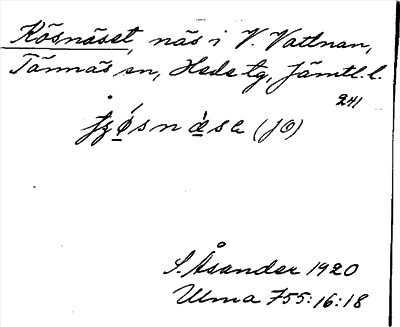 Kösnäset, näs i V. Vattnan,
Tännäs sn, Hede tg, Jämtl. l.
241
(jo)
S. Åsander 1920
Ulma 755:16:18